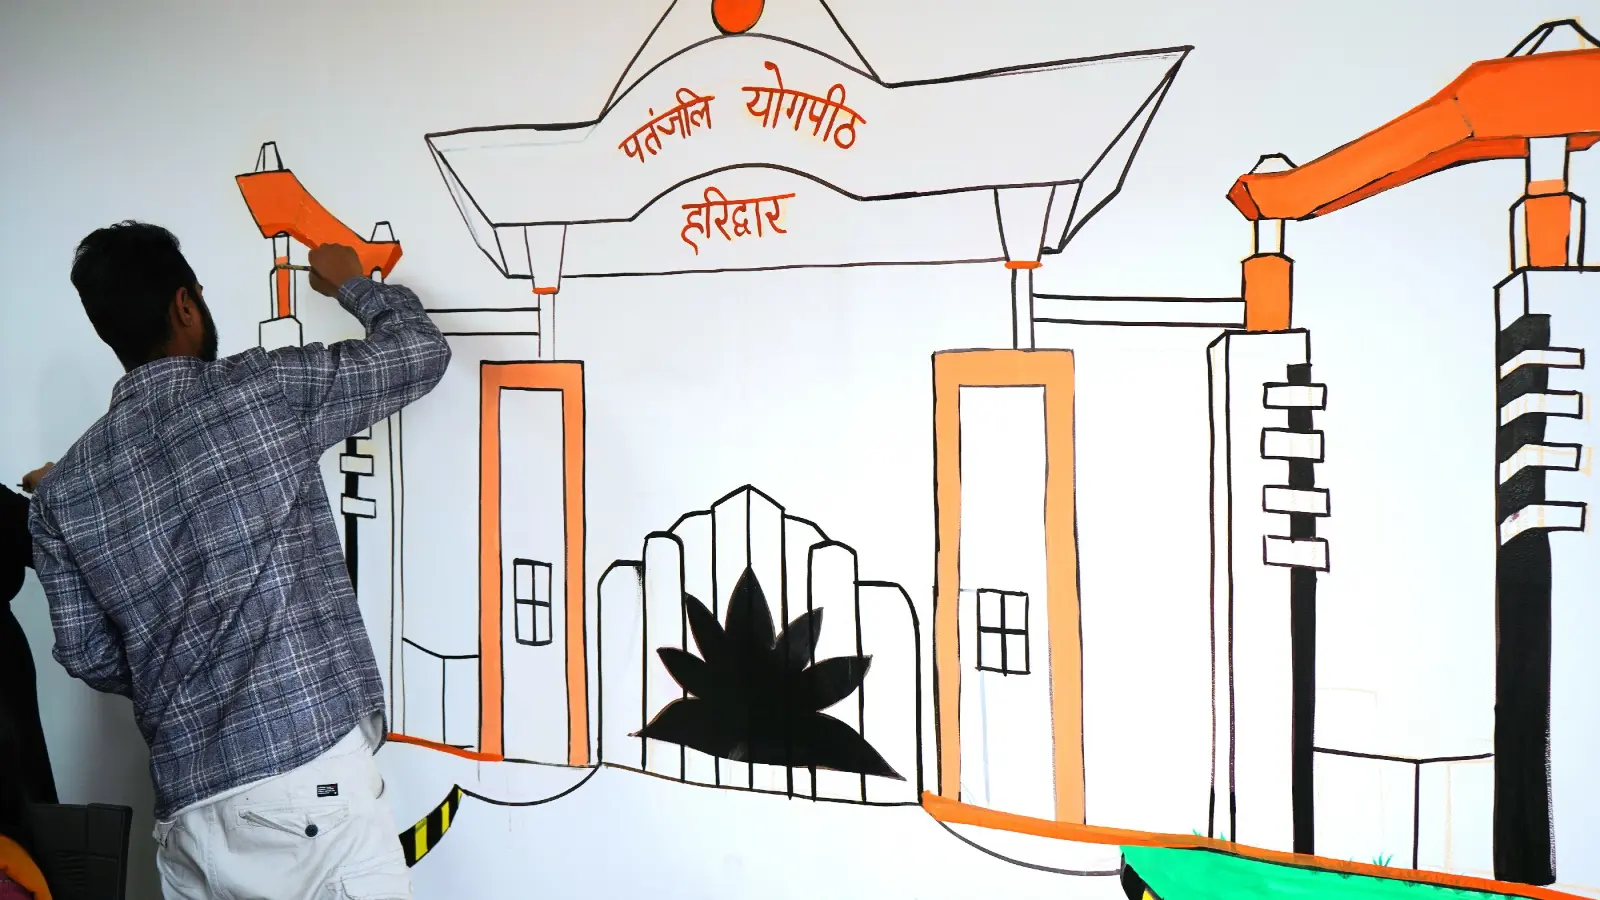 पतंजलि योगपीठ
हरिद्वार